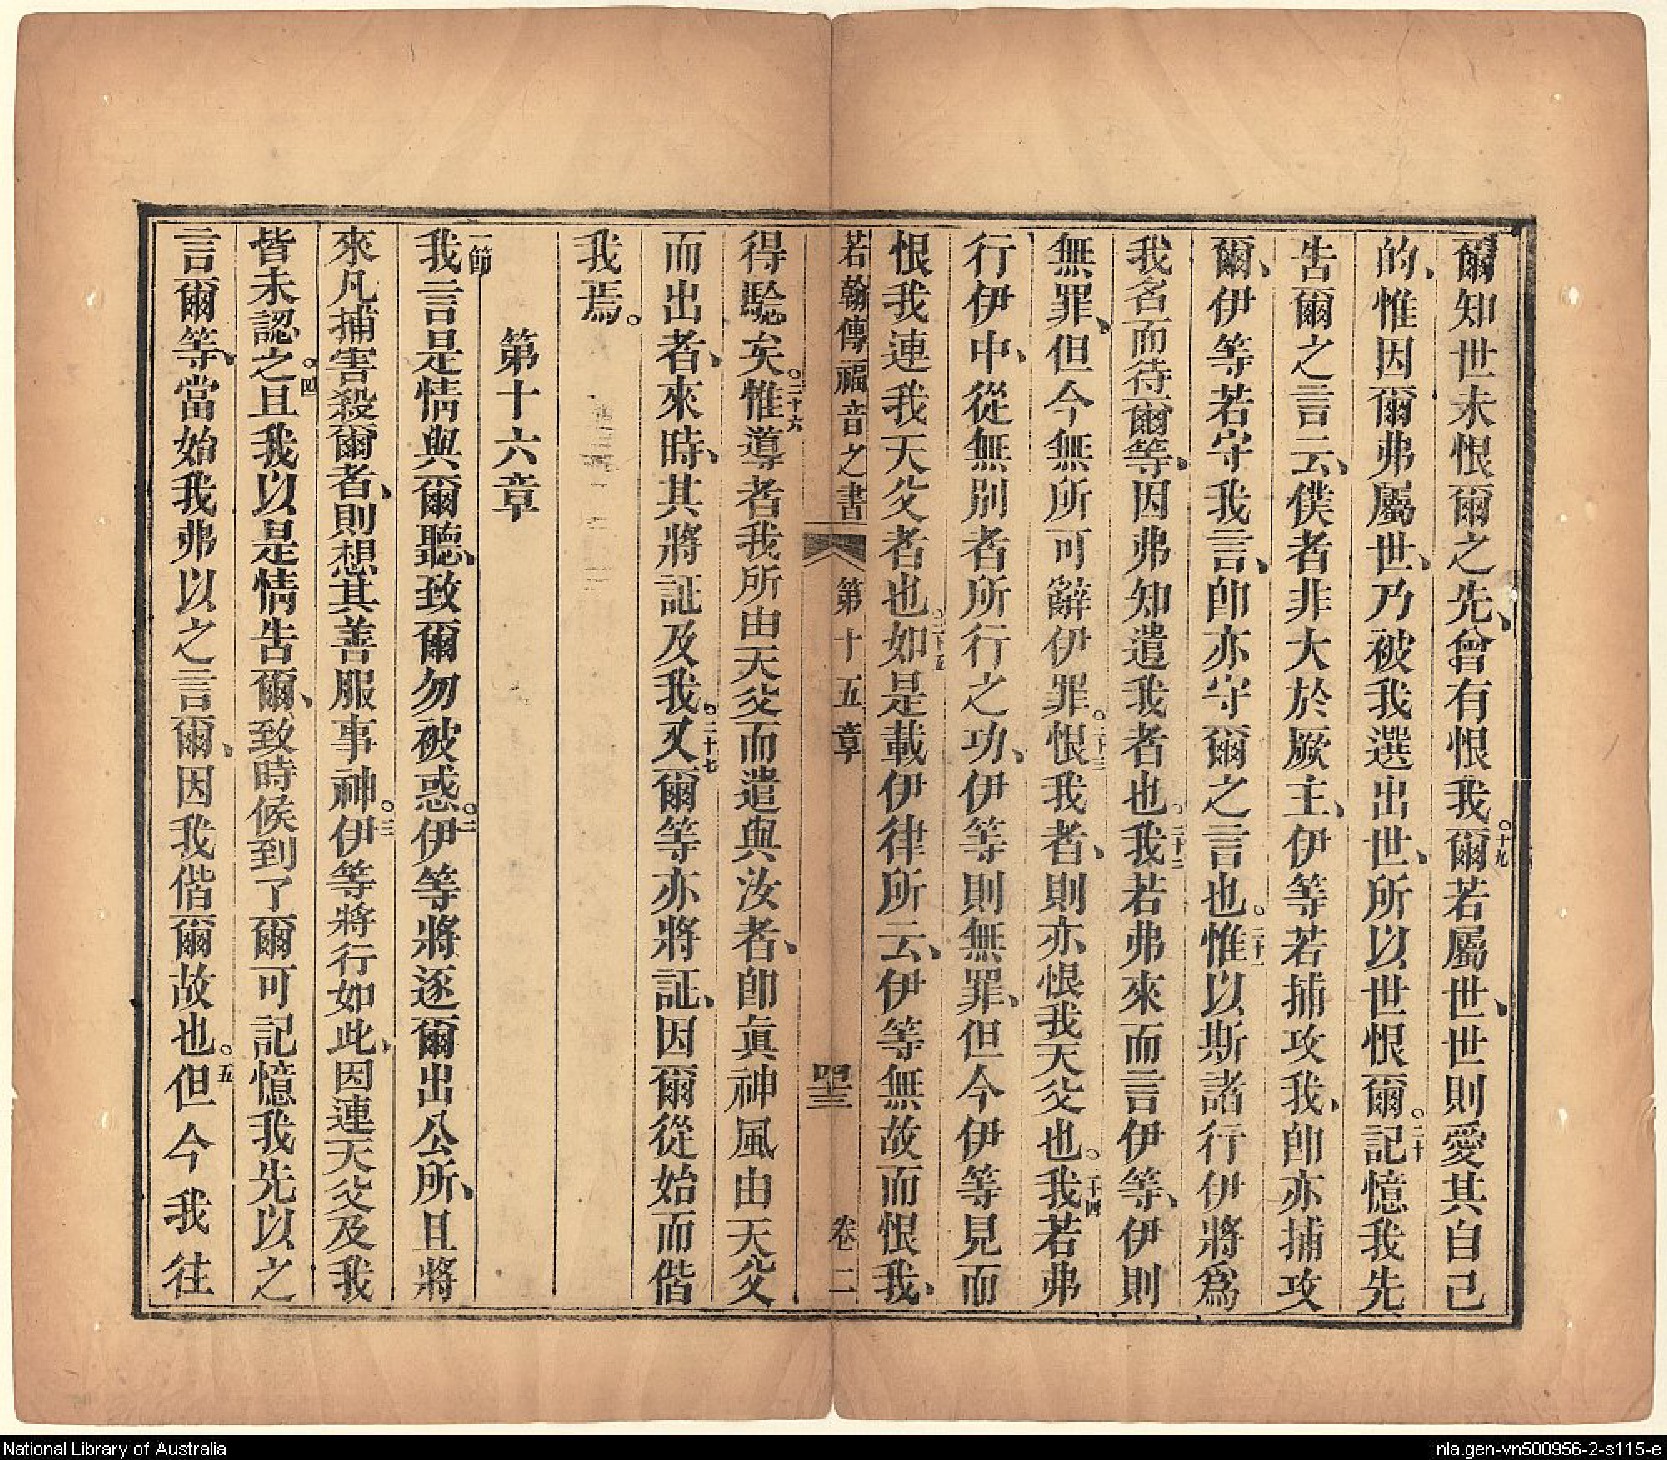 爾知世未恨爾之先、曾有恨我。十九爾若屬世、世則愛其自己
的、惟因爾弗屬世、乃被我選出世、所以世恨爾。二十記憶我先
吿爾之言云、僕者非大於厥主、伊等若捕攻我、卽亦捕攻
爾、伊等若守我言、卽亦守爾之言也。二十一惟以斯諸行伊將爲
我名而待爾等、因弗知遣我者也。二十二我若弗來而言伊等、伊則
無罪、但今無所可辭伊罪。二十三恨我者、則亦恨我天父也。二十四我若弗
行伊中、從無別者所行之功、伊等則無罪、但今伊等見而
恨我連我天父者也。二十五如是載伊律所云、伊等無故而恨我、
若翰傳福音之書 第十五章 四三 卷二
得驗矣。二十六惟導者我所由天父而遣與汝者、卽眞神風由天父
而出者、來時、其將証及我。二十七又爾等亦將証、因爾從始而偕
我焉。
第十六章
一節我言是情與爾聽、致爾勿被惑。二伊等將逐爾出公所、且將
來凡捕害殺爾者、則想其善服事神。三伊等將行如此、因連天父及我
皆未認之。四且我以是情吿爾、致時候到了爾可記憶我先以之
言爾等、當始我弗以之言爾、因我偕爾故也。五但今我往
National Library of Australia
nla.gen-vn500956-2-s115-e